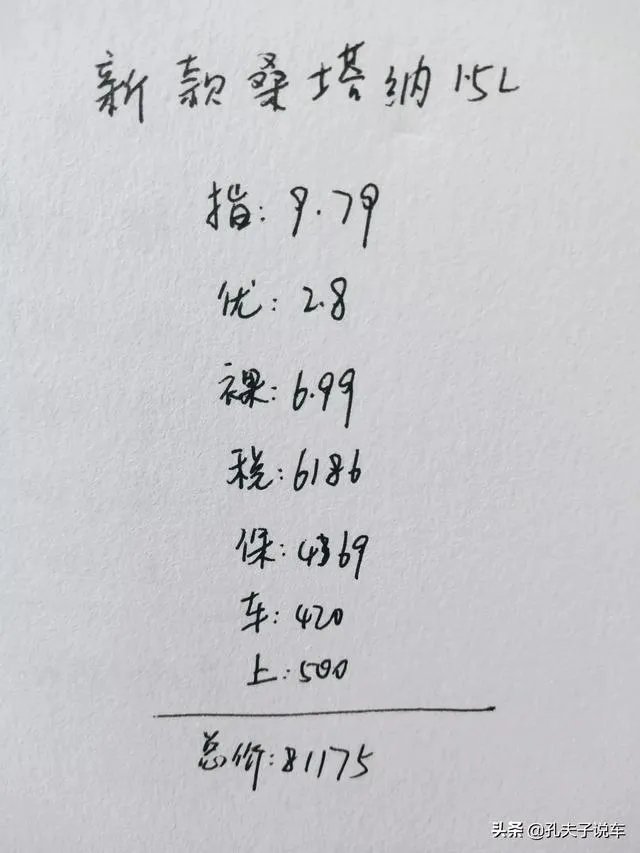 新款桑塔纳1.5L
指:9.79
优:2.8
裸:6.99
税:6186
保:4369
车:420
上:500
总价:81175
头条 @孔夫子说车